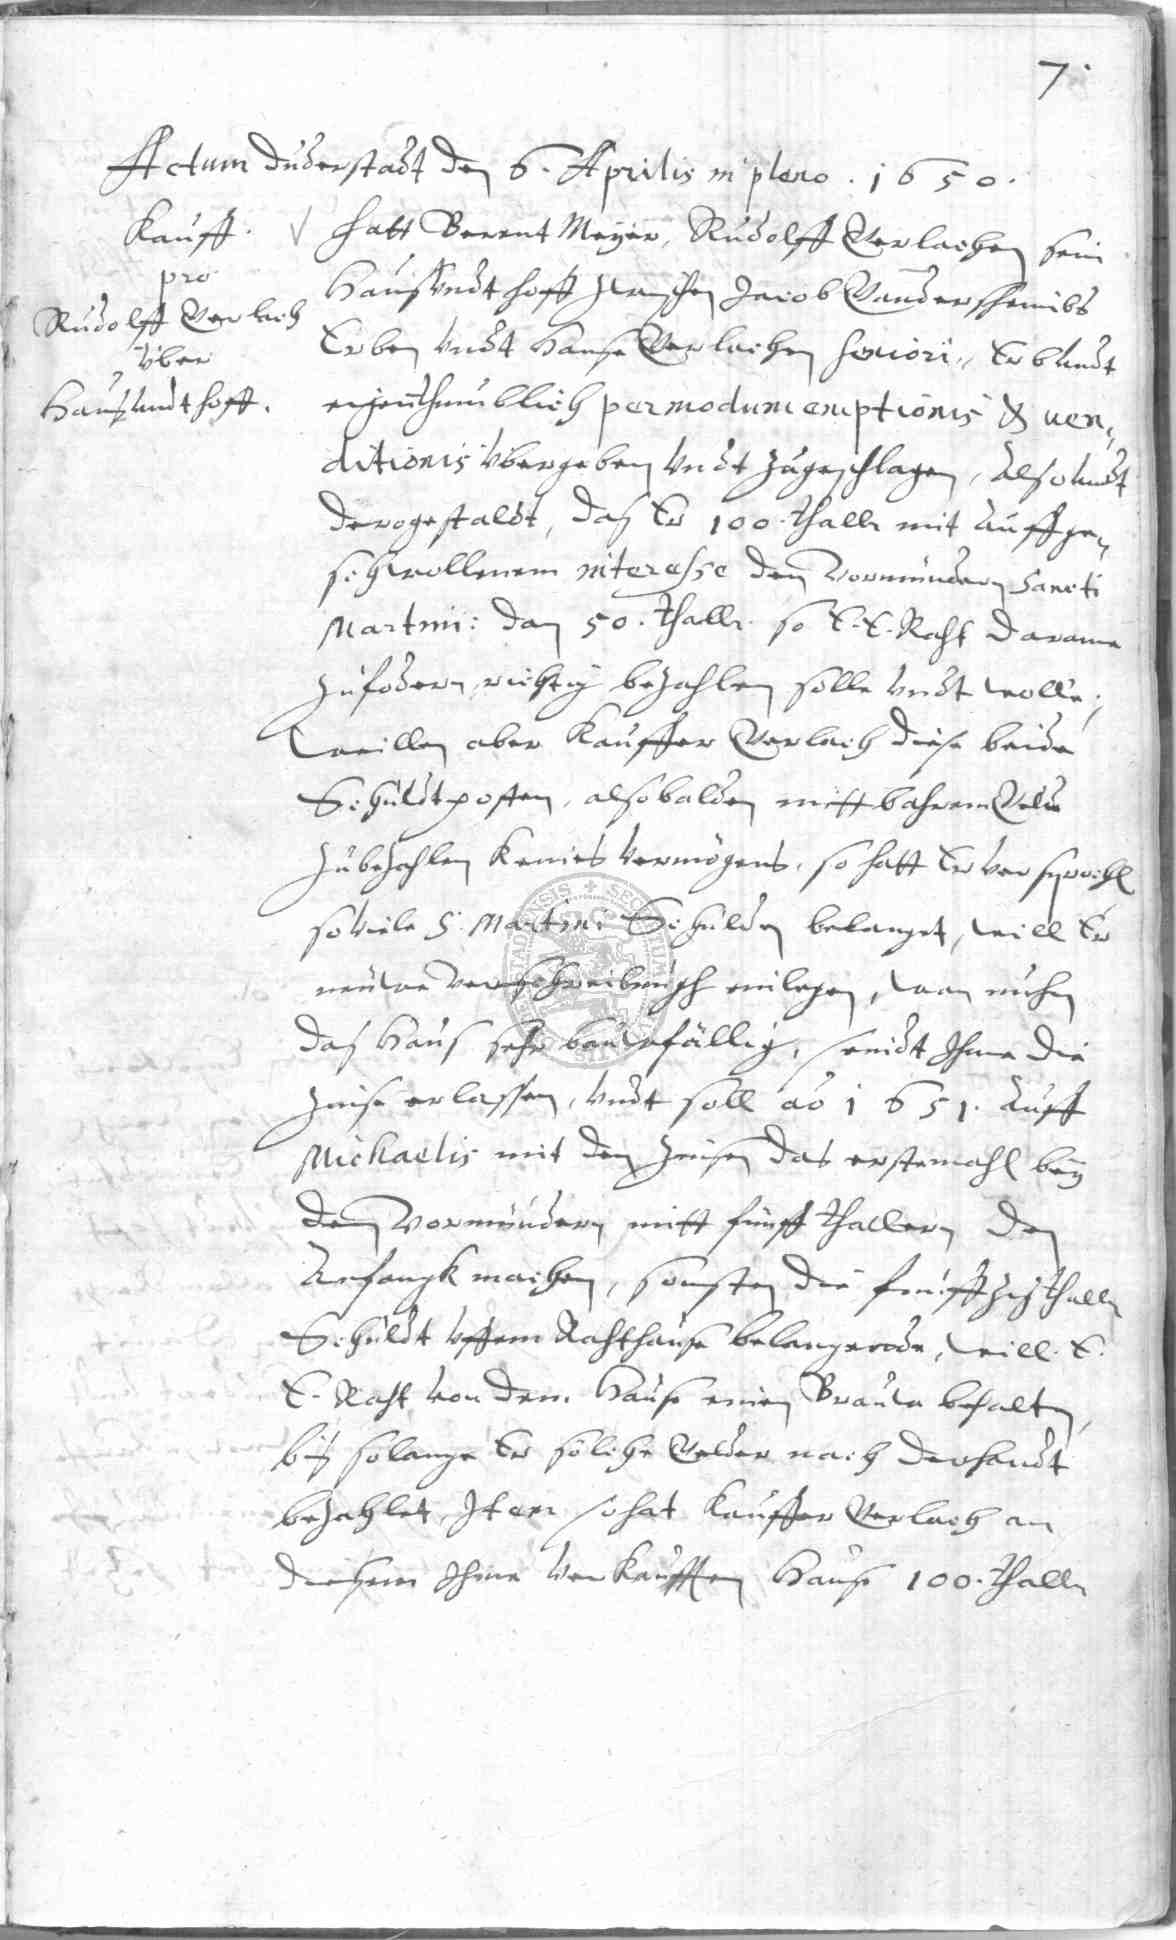 7.
Actum Duderstadt den 6. Aprilis in pleno. 1650.
Kauff.
pro
Rudolff Gerlach
über
Hauß undt Hoff.
Hatt Berent Meyer, Rudolff Gerlachen sein
Hauß undt Hoff zwischen Jacob
Erben undt Hanse Gerlachen seniori, Erb undt
eigenthumblich per modum emptionis & ven„
ditionis übergeben undt zugeschlagen, also undt
derogestaldt, daß Er 100. Thallr mit auffge„
schwollenem interesse den Vormündern Sancti
Martini: dan 50. Thallr. so E. E. Raht darane
zufodern, richtig bezahlen solle undt wolle;
weillen aber Kauffer Gerlach diese beide
Schuldtposten, alsobalden mitt bahrem Gelde
zubezahlen keines Vermögens, so hatt Er versprochen
soviele S. Martini Schulden belanget, will Er
neuwe Verschreibungh einlegen, wan nuhn
daß Hauß sehr bauwfällig, seindt Ihme die
Zinse erlassen, undt soll ao 1651. auff
Michaelis mit den Zinsen das erstemahl bey
den Vormündern mitt fünff Thallern den
Anfangk machen, sonsten die funffzigh Thallr
Schuldt uffem Rahthause belangende, will E.
E. Raht von dem Hause einen Brauw behalten,
biß solange Er solche Gelder nach derhandt
bezahlet, Item so hat Kauffer Gerlach an
diesem Ihme verkaufften Hause 100. Thallr